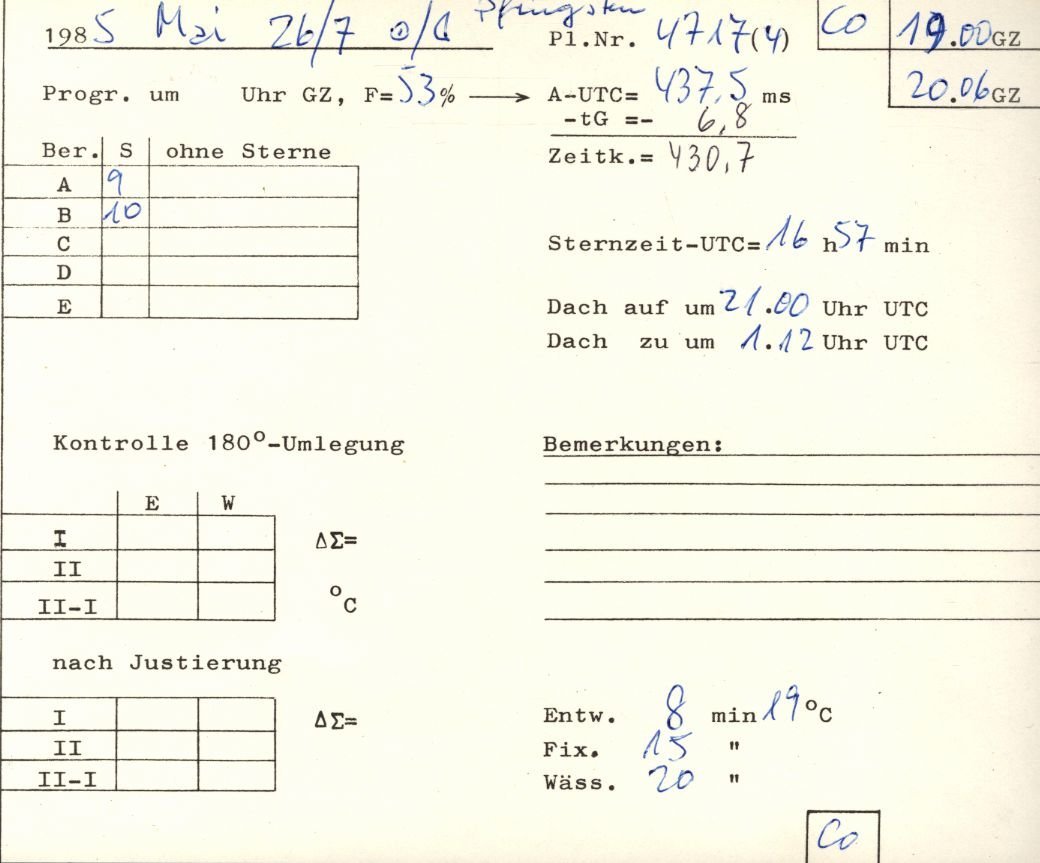 1985 Mai 26/7 ☉/☾ Pfingsten
Pl.Nr. 4717(4) Co 19.00GZ
20.06GZ
Progr. um Uhr GZ, F=53% → A-UTC= 437,5 ms
-tG =- 6,8
Zeitk.= 430,7
Ber. S ohne Sterne
A 9
B 10
C
D
E
Sternzeit-UTC=16 h57 min
Dach auf um 21.00 Uhr UTC
Dach zu um 1.12 Uhr UTC
Kontrolle 180°-Umlegung
E W
I ΔΣ=
II
II-I °C
Bemerkungen:
nach Justierung
I ΔΣ=
II
II-I
Entw. 8 min 19°C
Fix. 15 "
Wäss. 20 "
Co